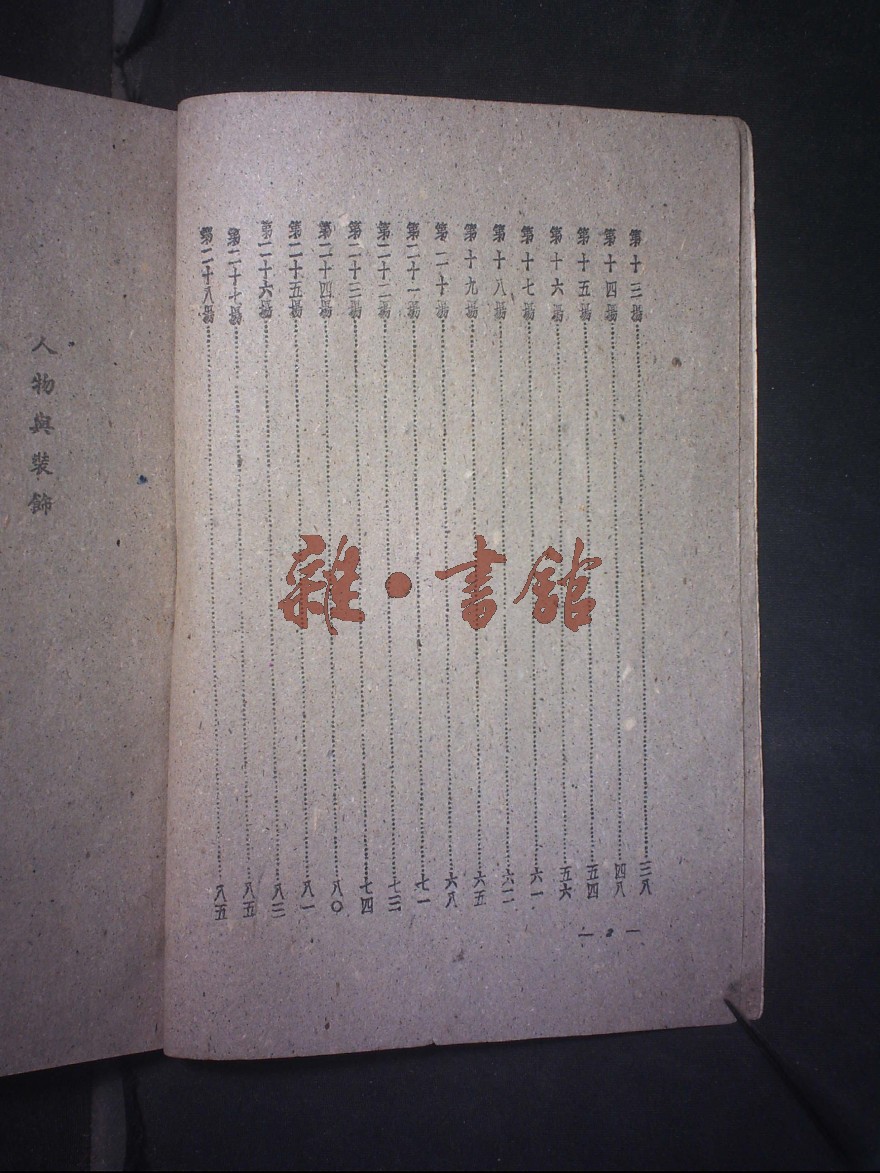 第十三場……三八
第十四場……四八
第十五場……五四
第十六場……五六
第十七場……六一
第十八場……六二
第十九場……六五
第二十場……六八
第二十一場……七一
第二十二場……七三
第二十三場……七四
第二十四場……八〇
第二十五場……八一
第二十六場……八三
第二十七場……八五
第二十八場……八五
人物與裝飾
雜·書館